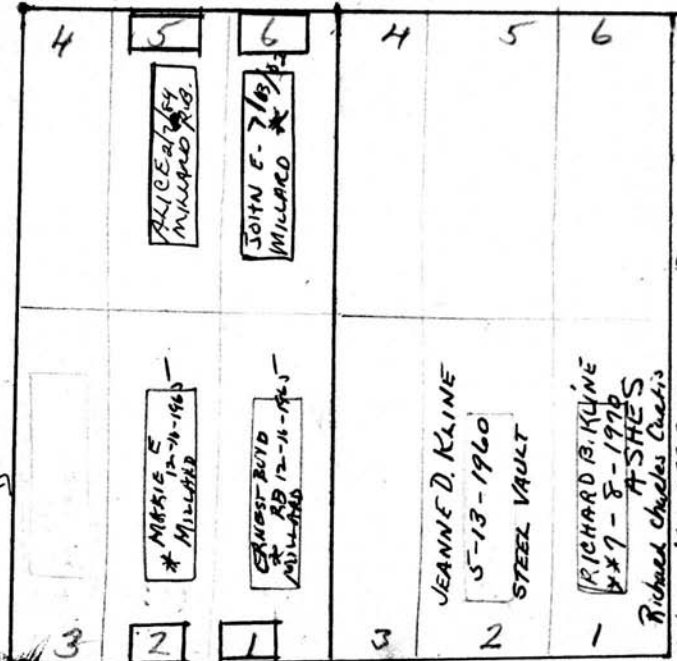 4 5 6 4 5 6
ALICE 2/7/84
MILLARD R.B.
JOHN E - 7/13/83
MILLARD *
* MARIE E
12-16-1965
MILLARD
ERNEST BOYD
* RB 12-16-1965
MILLARD
JEANNE D. KLINE
5-13-1960
STEEL VAULT
RICHARD B. KLINE
**7-8-1970
ASHES
Richard Charles Curtis
3 2 1 3 2 1